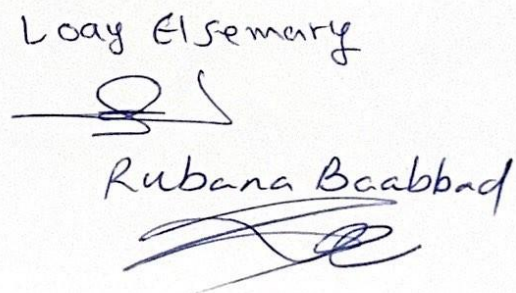 Loay Elsemary
Rubana Baabbad